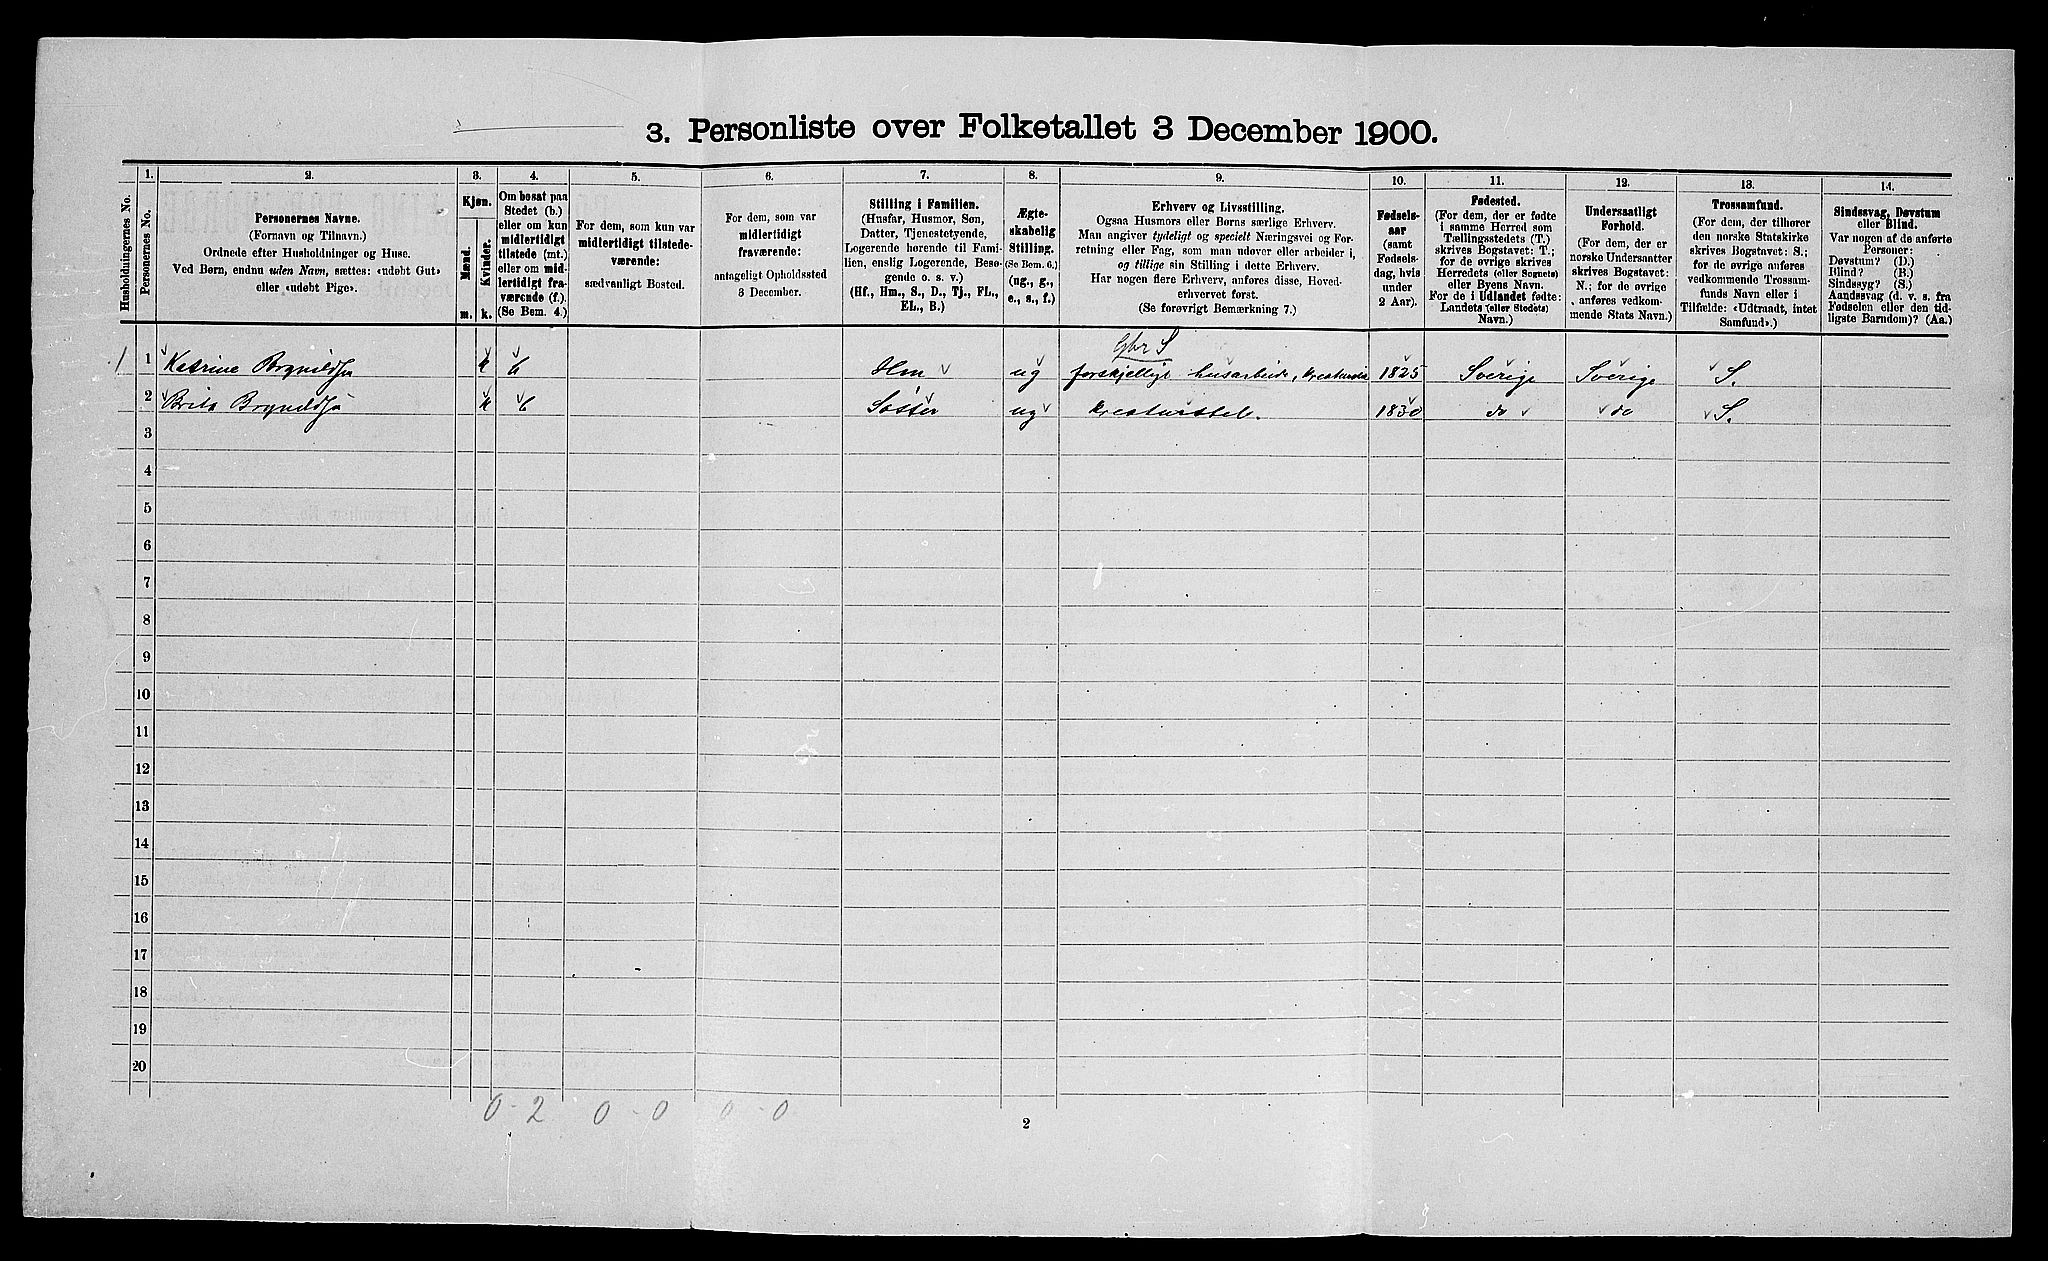 3. Personliste over Folketallet 3 December 1900.
Husholdningernes No.
1.
Personernes No.
2.
Personernes Navne.
(Fornavn og Tilnavn.)
Ordnede efter Husholdninger og Huse.
Ved Børn, endnu uden Navn, sættes: «udøbt Gut»
eller «udøbt Pige».
3.
Kjøn.
Mænd.
Kvinder.
m.
k.
4.
Om bosat paa
Stedet (b.)
eller om kun
midlertidigt
tilstede (mt.)
eller om mid-
lertidigt fra-
værende (f.).
(Se Bem. 4.)
5.
For dem, som kun var
midlertidigt tilstede-
værende:
sædvanligt Bosted.
6.
For dem, som var
midlertidigt
fraværende:
antageligt Opholdssted
3 December.
7.
Stilling i Familien.
(Husfar, Husmor, Søn,
Datter, Tjenestetyende,
Logerende hørende til Fami-
lien, enslig Logerende, Besø-
gende o. s. v.)
(Hf., Hm., S., D., Tj., FL.,
EL., B.)
8.
Ægte-
skabelig
Stilling.
(Se Bem. 6.)
(ug., g.,
e., s., f.)
9.
Erhverv og Livsstilling.
Ogsaa Husmors eller Børns særlige Erhverv.
Man angiver tydeligt og specielt Næringsvei og For-
retning eller Fag, som man udøver eller arbeider i,
og tillige sin Stilling i dette Erhverv.
Har nogen flere Erhverv, anføres disse, Hoved-
erhvervet først.
(Se forøvrigt Bemærkning 7.)
10.
Fødsels-
aar
(samt
Fødsels-
dag, hvis
under
2 Aar).
11.
Fødested.
(For dem, der er fødte
i samme Herred som
Tællingsstedets (T.)
skrives Bogstavet: T.;
for de øvrige skrives
Herredets (eller Sognets)
eller Byens Navn.
For de i Udlandet fødte:
Landets (eller Stedets)
Navn.)
12.
Undersaatligt
Forhold.
(For dem, der er
norske Undersaatter
skrives Bogstavet:
N.; for de øvrige
anføres vedkom-
mende Stats Navn.)
13.
Trossamfund.
(For dem, der tilhører
den norske Statskirke
skrives Bogstavet: S.;
for de øvrige anføres
vedkommende Trossam-
funds Navn eller i
Tilfælde: «Udtraadt, intet
Samfund».)
14.
Sindssvag, Døvstum
eller Blind.
Var nogen af de anførte
Personer:
Døvstum? (D.)
Blind? (B.)
Sindssyg? (S.)
Aandssvag (d. v. s. fra
Fødselen eller den tid-
ligste Barndom)? (Aa.)
Gbr S
1 1 Katrine k b Hm ug forskjelligt husarbeide, 1825 Sverige Sverige S.
2 Brita k b Søster ug kreaturstel. 1830 do do S.
3
4
5
6
7
8
9
10
11
12
13
14
15
16
17
18
19
20
0 - 2 0 - 0 0 - 0
2